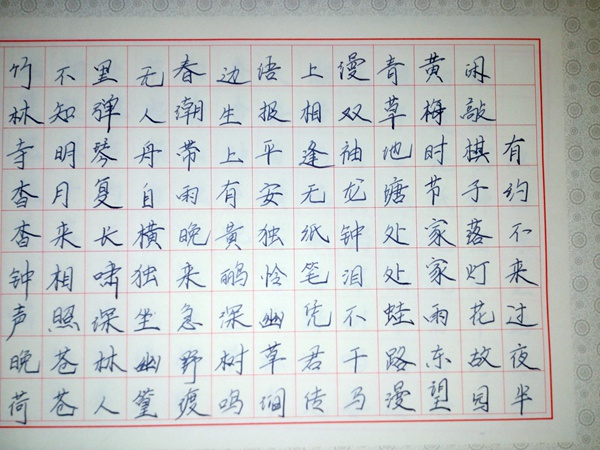 有约不来过夜半
闲敲棋子落灯花故园
黄梅时节家家雨东望
青草池塘处处蛙路漫
漫双袖龙钟泪不干马
上相逢无纸笔凭君传
语报平安独怜幽草涧
边生上有黄鹂深树鸣
春潮带雨晚来急野渡
无人舟自横独坐幽篁
里弹琴复长啸深林人
不知明月来相照苍苍
竹林寺杳杳钟声晚荷